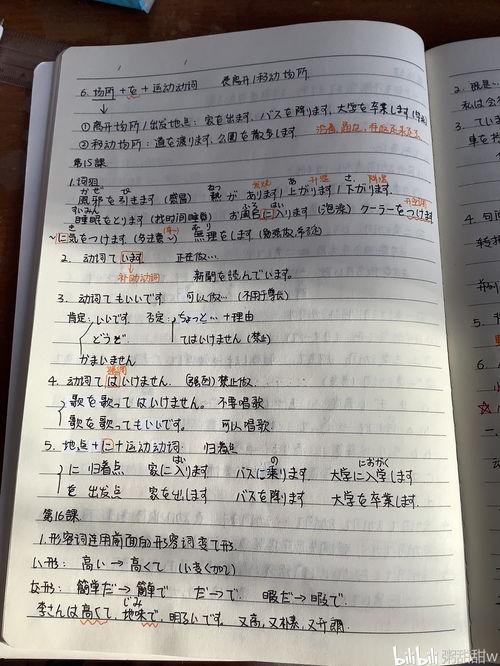 6. 场所+を+运动动词 表离开/移动场所.
①离开场所/出发地点: 家を出ます、バスを降ります、大学を卒業します
②移动场所: 道を渡ります、公園を散歩します
第15課
1. 词组
かぜ ひ ねつ 发烧 あ 升温 さ 降温
風邪を引きます (感冒) 熱があります/上がります/下がります.
すいみん ふろ はい 开空调
睡眠をとります (找时间睡觉) お風呂に入ります (泡澡) クーラーをつけます
~に気をつけます 無理をします
2. 动词て います 正在做…
补助动词 新聞を読んでいます。
3. 动词てもいいです 可以做… (不用于尊长)
肯定: いいです 否定: ちょっと…+理由
どうぞ てはいけません (禁止)
かまいません
4. 动词てはいけません. 禁止做…
歌を歌ってはいけません. 不要唱歌
歌を歌ってもいいです. 可以唱歌
5. 地点+に+运动动词: 归着点
はい の
に 归着点 家に入ります バスに乗ります 大学に入学します
を 出发点 家を出します バスを降ります 大学を卒業します.
第16課
1. 形容词连用前面的形容词变て形
い形: 高い→高くて
な形: 簡単だ→簡単で だ→で 暇だ→暇で.
じみ
李さんは高くて, 地味で, 明るいです. 又高, 又朴素, 又开朗
既是
私は会
3. てい
車を
4. 句
5.
6.
bilibili 粥甜甜w